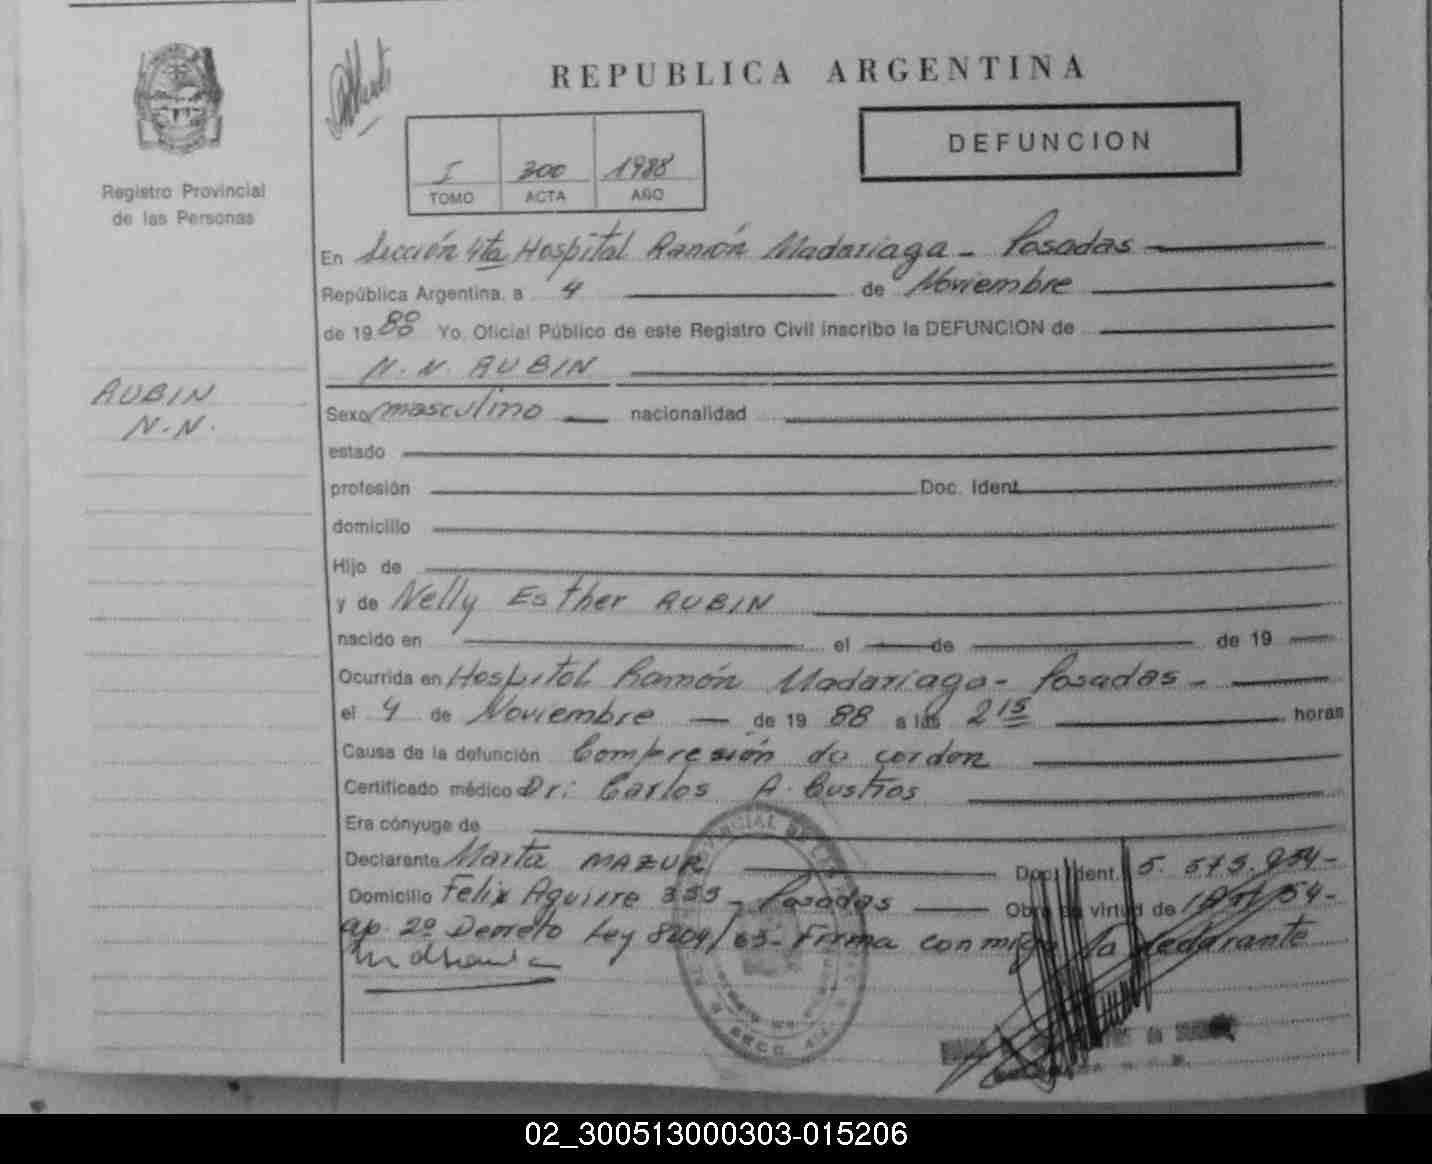 REPUBLICA ARGENTINA
DEFUNCION
I 300 1988
TOMO ACTA AÑO
Registro Provincial
de las Personas
En Sección 4ta Hospital Ramón Madariaga - Posadas
República Argentina, a 4 de Noviembre
de 19 88 Yo, Oficial Público de este Registro Civil inscribo la DEFUNCION de
N.N. RUBIN
RUBIN
N.N.
Sexo masculino nacionalidad
estado
profesión Doc. Ident.
domicilio
Hijo de
y de Nelly Esther RUBIN
nacido en el de de 19
Ocurrida en Hospital Ramón Madariaga - Posadas -
el 4 de Noviembre de 19 88 a las 2 15 horas
Causa de la defunción Compresión de cordon
Certificado médico Dr: Carlos A. Bustios
Era cónyuge de
Declarante Marta MAZUR Doc. Ident. 5.575.954-
Domicilio Felix Aguirre 355 - Posadas Obra en virtud de
ap. 2º Decreto Ley 8204/63- Firma conmigo la declarante
02_300513000303-015206